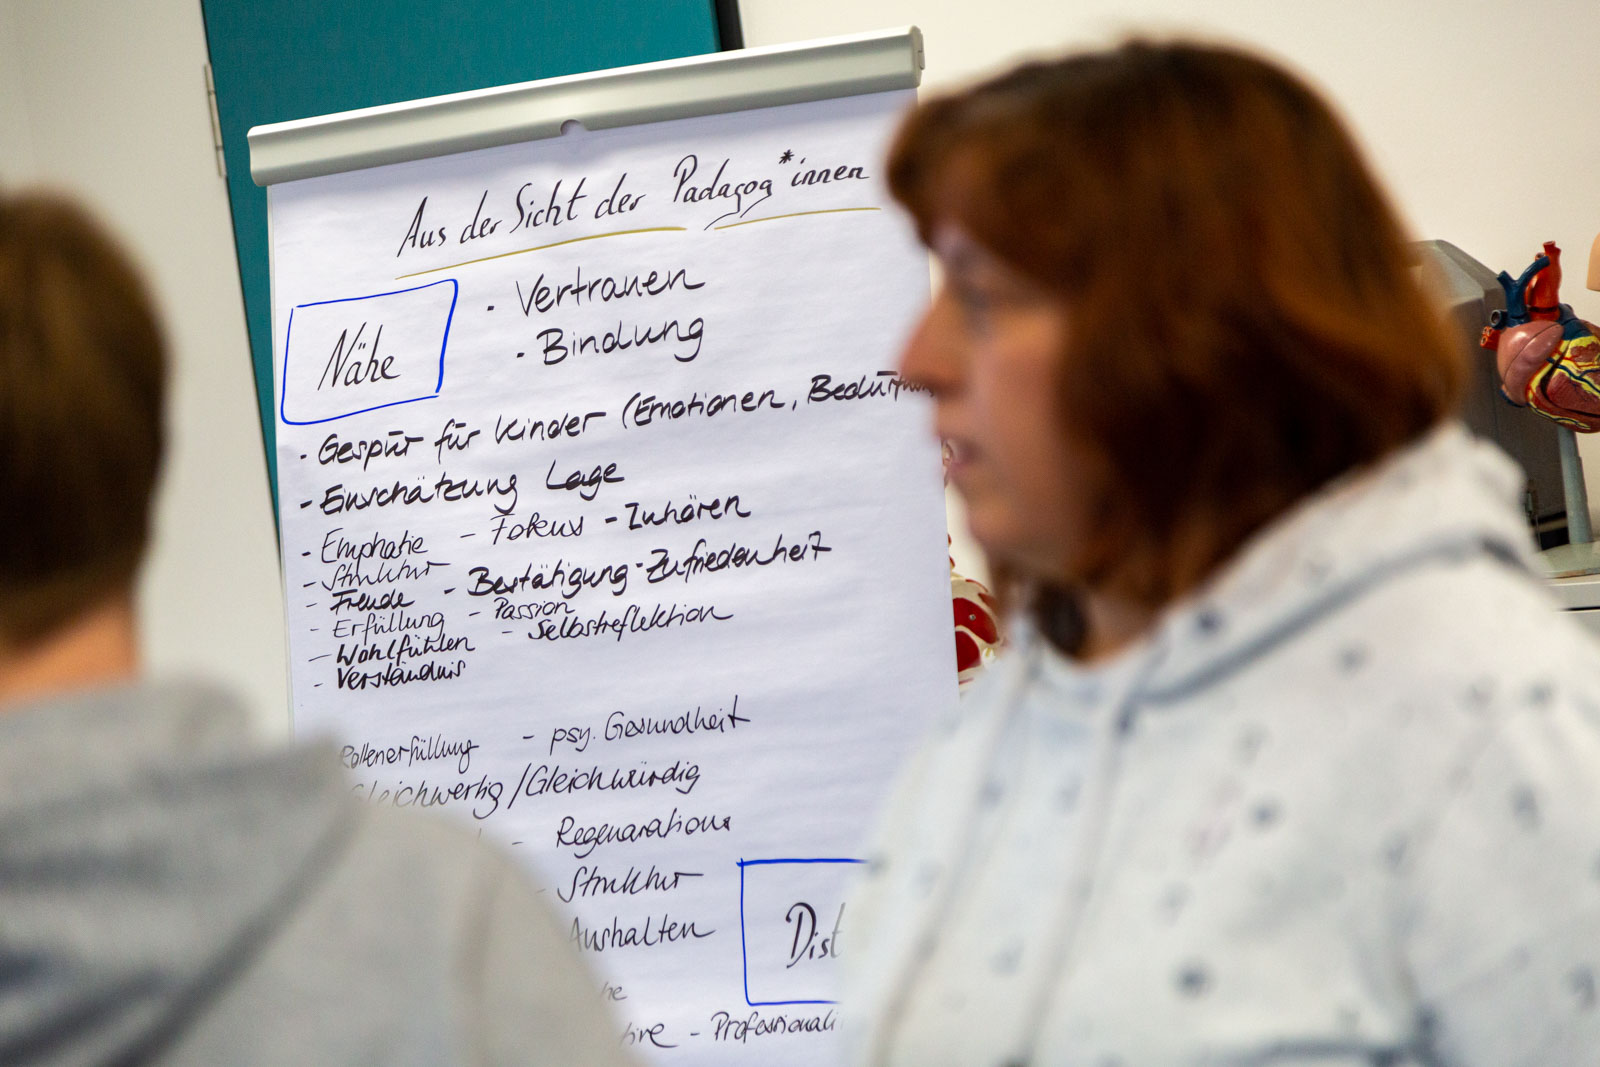 Aus der Sicht der Pädagog*innen
Nähe
· Vertrauen
· Bindung
· Gespür für Kinder (Emotionen,
- Einschätzung Lage
- Emphatie - Fokus - Zuhören
- Struktur
- Freude - Bestätigung - Zufriedenheit
- Erfüllung - Passion
- Wohlfühlen - Selbstreflektion
- Verständnis
Rollenerfüllung - psy. Gesundheit
Gleichwertig / Gleichwürdig
- Regenarations
- Struktur
Aushalten
Dist
- Professionali